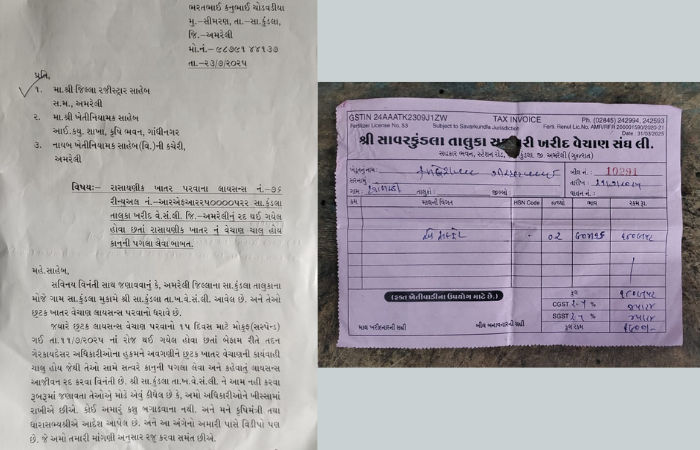 ભરતભાઈ કનુભાઈ ચોડવડીયા
મુ.-સીમરણ, તા.-સા.કુંડલા,
જિ.-અમરેલી
મો.નં.-૯૮૭૯૧ ૪૪૧૩૭
તા.-૨૩/૭/૨૦૨૫
પ્રતિ,
૧. મા.શ્રી જિલ્લા રજીસ્ટ્રાર સાહેબ
સ.મ., અમરેલી
૨. મા.શ્રી ખેતીનિયામક સાહેબ
આઈ.કયુ. શાખા, કૃષિ ભવન, ગાંધીનગર
૩. નાયબ ખેતીનિયામક સાહેબ(વિ.)ની કચેરી,
અમરેલી
વિષય:- રાસાયણીક ખાતર પરવાના લાયસન્સ નં.-૭૬
રીન્યુઅલ નં.-આરએફઆરર૫૦૦૦૦૫૨૨ સા.કુંડલા
તાલુકા ખરીદ વે.સં.લી. જિ.-અમરેલીનું રદ થઈ ગયેલ
હોવા છતાં રાસાણીક ખાતર નં વેચાણ ચાલુ હોય
કાનુની પગલા લેવા બાબત.
મહે.સાહેબ,
સવિનય વિનંતી સાથ જણાવવાનું કે, અમરેલી જિલ્લાના સા.કુંડલા તાલુકાના
મોજે ગામ સા.કુંડલા મુકામે શ્રી સા.કુંડલા તા.ખ.વે.સં.લી. આવેલ છે. અને તેઓ
છુટક ખાતર વેચાણ લાયસન્સ પરવાનો ધરાવે છે.
જ્યારે છુટક લાયસન્સ વેચાણ પરવાનો ૧૫ દિવસ માટે મોકુફ(સસ્પેન્ડ)
ગઈ તા.૧૧/૭/૨૦૨૫ નાં રોજ થઈ ગયેલ હોવા છતાં બેફામ રીતે તદન
ગેરકાયદેસર અધિકારીઓના હુકમને અવગણીને છુટક ખાતર વેચાણની કાર્યવાહી
ચાલુ હોય જેથી તેઓ સામ સત્વરે કાનુની પગલા લેવા અને કહેવાતું લાયસન્સ
આજીવન રદ કરવા વિનંતી છે. શ્રી સા.કુંડલા તા.ખ.વે.સં.લી. ને આમ નહી કરવા
રૂબરૂમાં જણાવતા તેઓએ મોડે એવું કીધેલ છે કે, અમો અધિકારીઓને ખીસ્સામાં
રાખીએ છીએ. કોઈ અમારું કશુ બગાડવાના નથી. અને મને કૃષિમંત્રી તથા
ધારાસભ્યશ્રીએ આદેશ આપેલ છે. અને આ અંગેનો અમારી પાસે વિડીયો પણ
છે. જે અમો તમારી માંગણી અનુસાર રજુ કરવા સંમત છીએ.
GSTIN 24AAATK2309J1ZW TAX INVOICE Ph. (02845) 242994, 242593
Fertilizer License No. 53 Subject to Savarkundla Jurisdiction Ferti. Renul Lic No. AMR/RFR 200001590/2020-21
Dt. 31/03/2025
શ્રી સાવરકુંડલા તાલુકા ખરીદ વેચાણ સંઘ લી.
સહકાર ભવન, સ્ટેશન રોડ, જી. અમરેલી (ગુજરાત)
ખેડુતનું નામ: બીલ નં.: 10291
સરનામું તારીખ:
ગામ: તાલુકો: જીલ્લો: વાહન નં.:
ક્રમ માલની વિગત HSN Code ભાવ રકમ રૂા.
૦૨
(ફક્ત ખેતીવાડીના ઉપયોગ માટે છે.)
CGST ૨-૫ %
SGST ૨-૫ %
માલ ખરીદનારની સહી બીલ બનાવનારની સહી